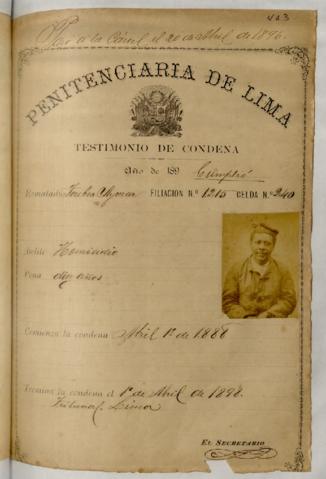 443
Pasó a la Cárcel el 20 de Abril de 1896.
PENITENCIARIA DE LIMA
TESTIMONIO DE CONDENA
Año de 189 Cumplió
Rematado FILIACION N.º 1215 CELDA N.º 240
Delito Homicidio
Pena diez años
Comienza la condena Abril 1º de 1888
Termina la condena el 1º de Abril de 1898.
Tribunal, Lima
EL SECRETARIO